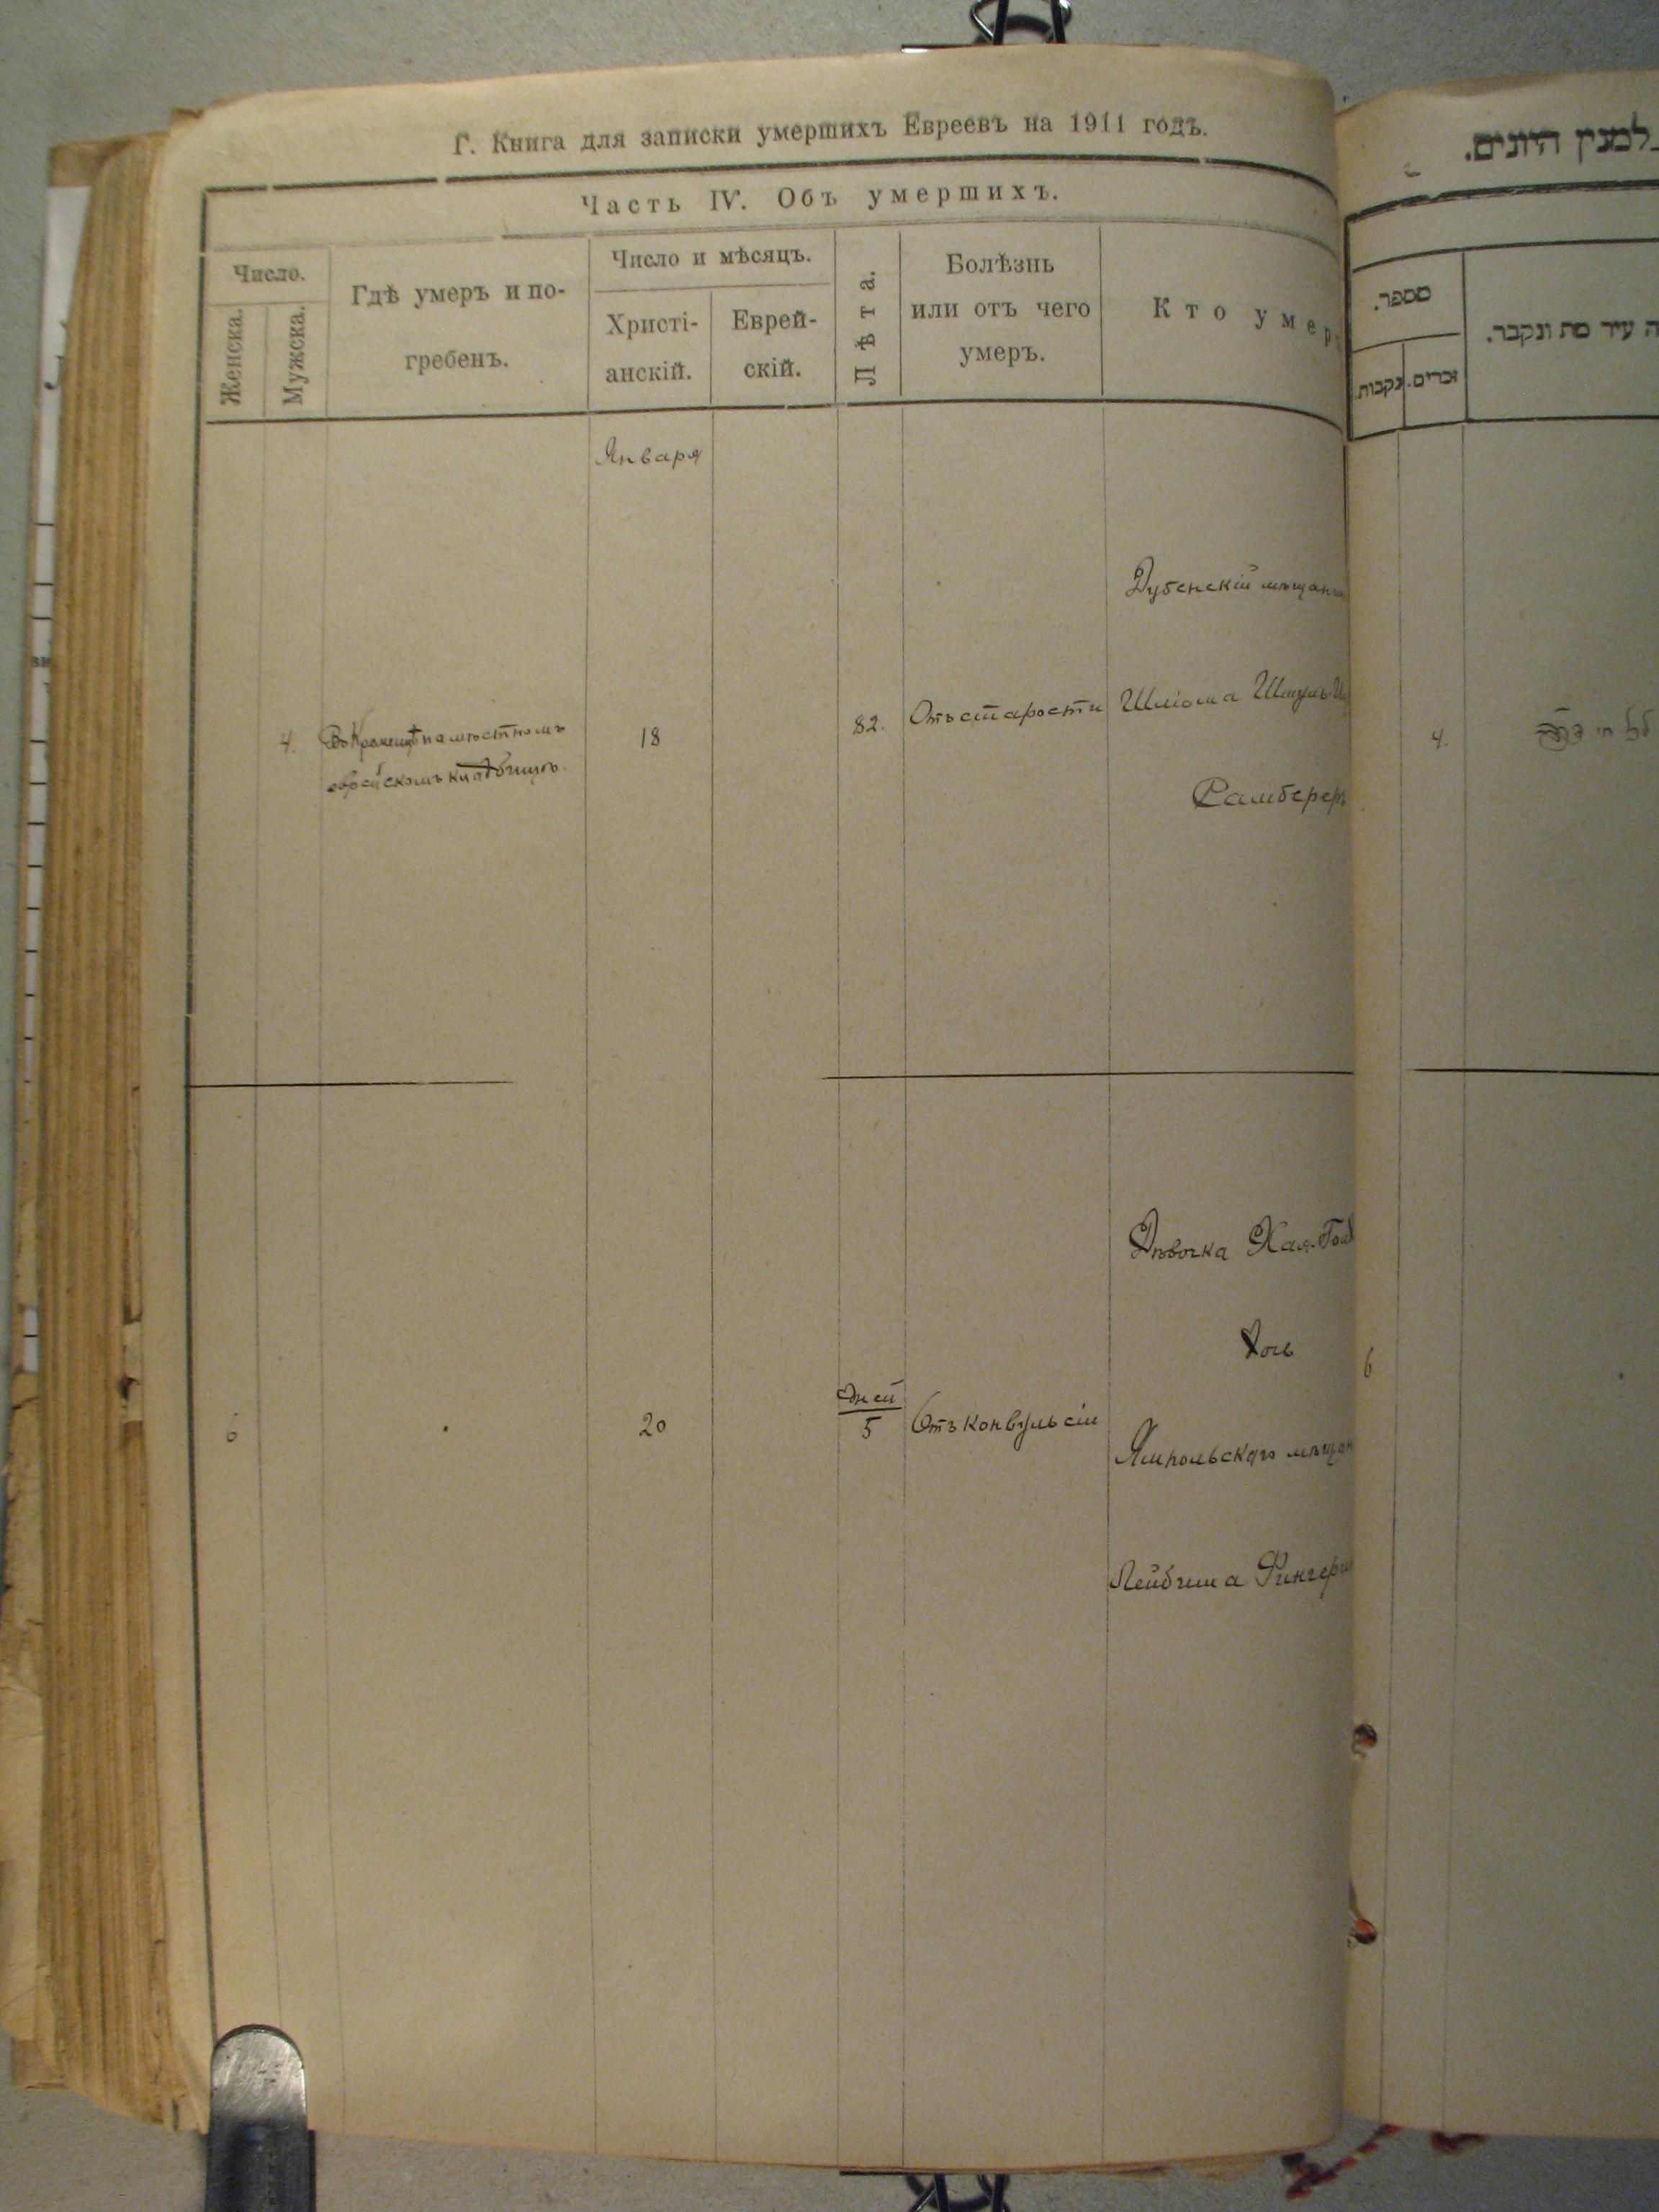 Г. Книга для записки умершихъ Евреевъ на 1911 годъ.
Часть IV. Объ умершихъ.
Число.
Женска.
Мужска.
Гдѣ умеръ и по-
гребенъ.
Число и мѣсяцъ.
Христі-
анскій.
Еврей-
скій.
Лѣта.
Болѣзнь
или отъ чего
умеръ.
Кто умер
Января
4.
на мѣстномъ
еврейскомъ кладбищѣ.
18
82.
Отъ старости
Дубенскій мѣщанин
Шліома Шмуль
Рамберер
6
20
Дней
5
Отъ конвульсіи
Дѣвочка Хая-Гол
дочь
Ямпольскаго мѣщан
Лейбиша Фингер
למנין היונים.
מספר.
נקבות.
זכרים.
ה עיר מת ונקבר.
4.
6